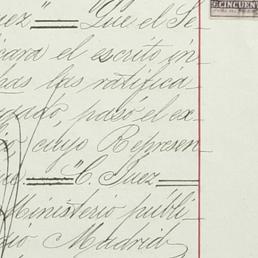 uez" Que el Se-
cara el escrito in-
has las ratifica-
ugado, pasó el ex-
cuyo Represen-
ue. "C. Juez
Ministerio públi-
cio Madrid
CINCUEN